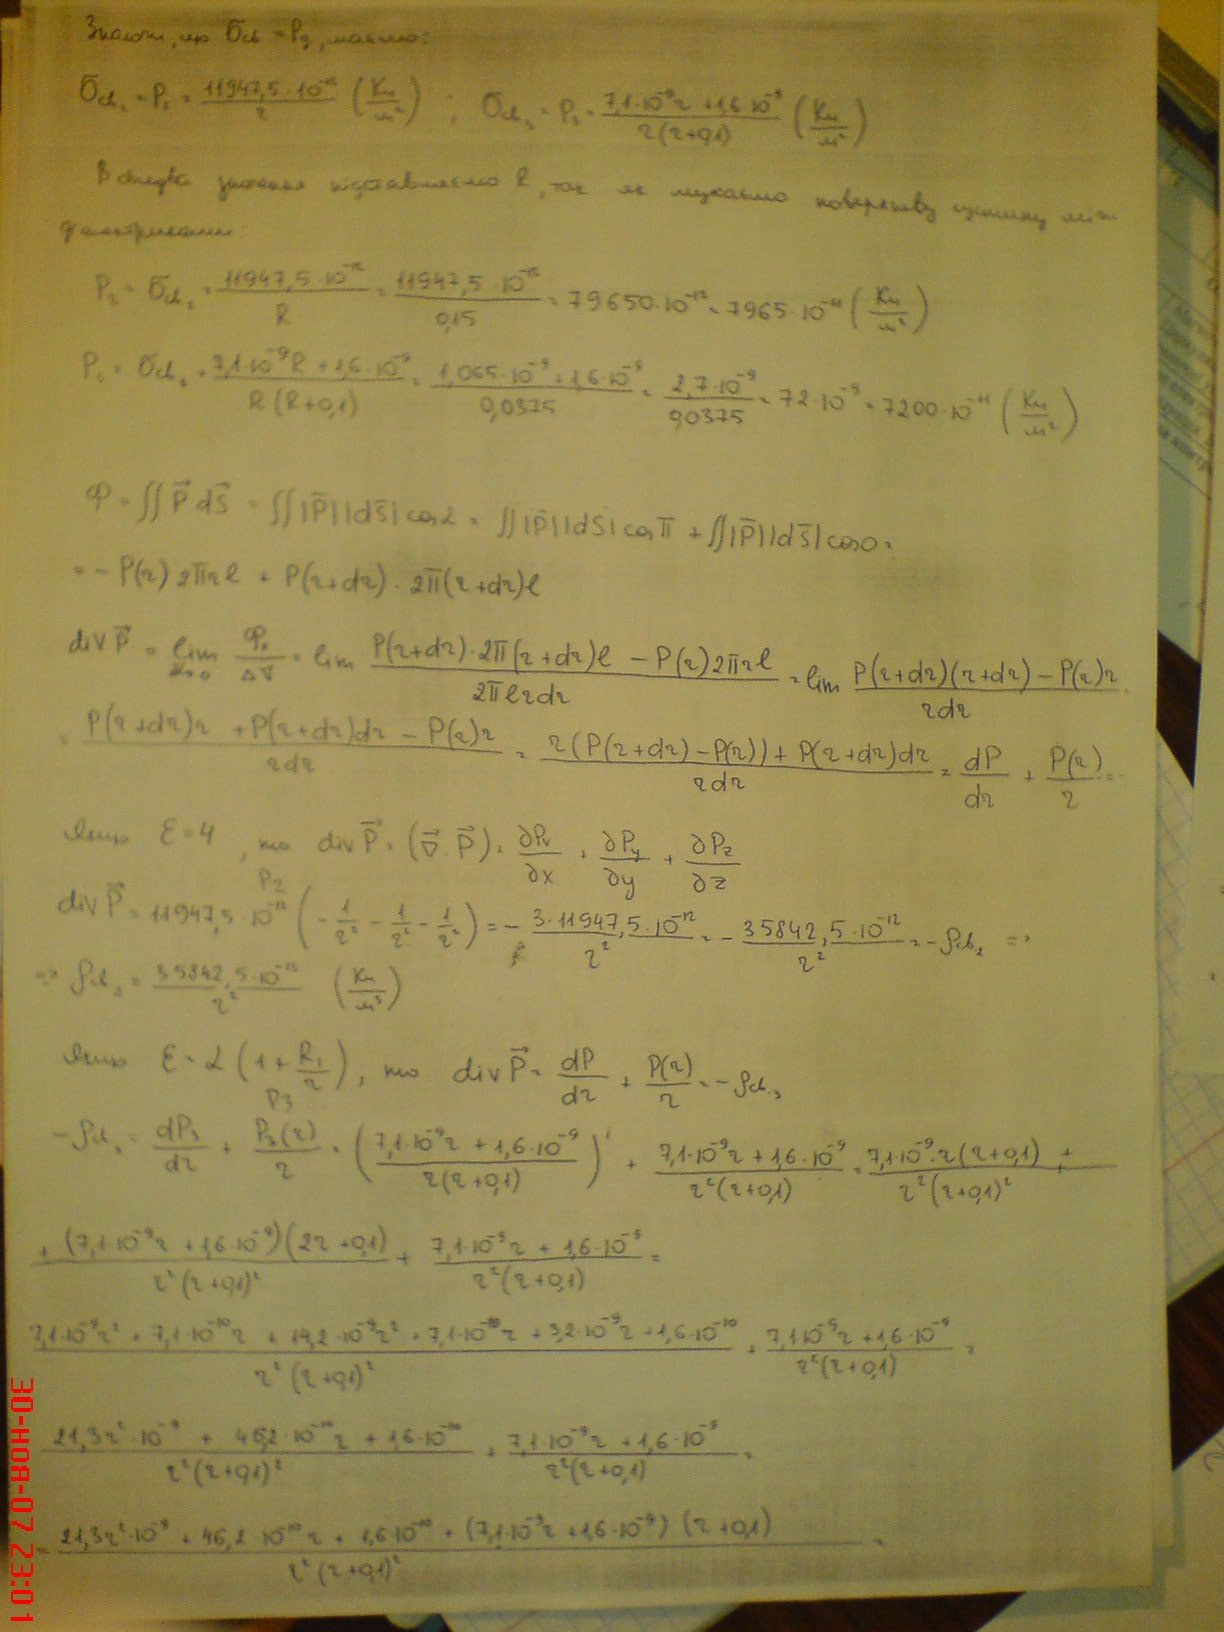 Знаючи, що σсв = Pg, маємо:
σсв₂ = P₂ = 11947,5·10⁻¹²/r (Кл/м²) ; σсв₃ = P₃ = 7,1·10⁻⁹r + 1,6·10⁻⁹/r(r+0,1) (Кл/м²)
В значення підставляємо R, так як шукаємо поверхневу густину між
діелектриками:
P₂ = σсв₂ = 11947,5·10⁻¹²/R = 11947,5·10⁻¹²/0,15 = 79650·10⁻¹² = 7965·10⁻¹¹ (Кл/м²)
P₃ = σсв₃ = 7,1·10⁻⁹R + 1,6·10⁻⁹/R(R+0,1) = 1,065·10⁻⁹ + 1,6·10⁻⁹/0,0375 = 2,7·10⁻⁹/0,0375 = 72·10⁻⁹ = 7200·10⁻¹¹ (Кл/м²)
Φ = ∬P⃗dS⃗ = ∬|P⃗||dS⃗|cosα = ∬|P⃗||dS⃗|cosπ + ∬|P⃗||dS⃗|cos0 =
= -P(r)2πrl + P(r+dr)·2π(r+dr)l
div P⃗ = lim Φ/ΔV = lim P(r+dr)·2π(r+dr)l - P(r)2πrl/2πlrdr = lim P(r+dr)(r+dr) - P(r)r/rdr
= P(r+dr)r + P(r+dr)dr - P(r)r/rdr = r(P(r+dr) - P(r)) + P(r+dr)dr/rdr = dP/dr + P(r)/r =
Якщо ε=4, то div P⃗ = (∇⃗·P⃗) = ∂Px/∂x + ∂Py/∂y + ∂Pz/∂z
P₂
div P⃗ = 11947,5·10⁻¹² (-1/r² - 1/r² - 1/r²) = -3·11947,5·10⁻¹²/r² = -35842,5·10⁻¹²/r² = -ρсв₂ =>
=> ρсв₂ = 35842,5·10⁻¹²/r² (Кл/м³)
Якщо ε = 2(1 + R₁/r), то div P⃗ = dP/dr + P(r)/r = -ρсв₃
P₃
-ρсв₃ = dP₃/dr + P₃(r)/r = (7,1·10⁻⁹r + 1,6·10⁻⁹/r(r+0,1))' + 7,1·10⁻⁹r + 1,6·10⁻⁹/r²(r+0,1) = 7,1·10⁻⁹·r(r+0,1) +/r²(r+0,1)²
+ (7,1·10⁻⁹r + 1,6·10⁻⁹)(2r+0,1)/r²(r+0,1)² + 7,1·10⁻⁹r + 1,6·10⁻⁹/r²(r+0,1) =
7,1·10⁻⁹r² + 7,1·10⁻¹⁰r + 14,2·10⁻⁹r² + 7,1·10⁻¹⁰r + 3,2·10⁻⁹r + 1,6·10⁻¹⁰/r²(r+0,1)² + 7,1·10⁻⁹r + 1,6·10⁻⁹/r²(r+0,1) =
21,3r²·10⁻⁹ + 46,2·10⁻¹⁰r + 1,6·10⁻¹⁰/r²(r+0,1)² + 7,1·10⁻⁹r + 1,6·10⁻⁹/r²(r+0,1) =
= 21,3r²·10⁻⁹ + 46,2·10⁻¹⁰r + 1,6·10⁻¹⁰ + (7,1·10⁻⁹r + 1,6·10⁻⁹)(r+0,1)/r²(r+0,1)² =
30-НОЯ-07 23:01